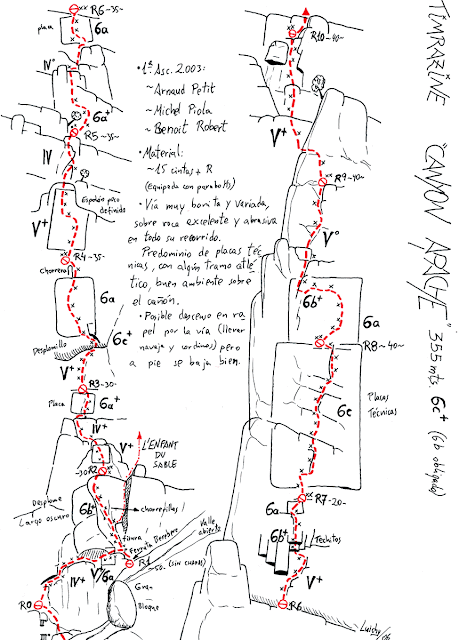 TIMRAZINE "CANYON APACHE" 355mts 6c+ (6b obligado)
•1ª Asc. 2003:
~ Arnaud Petit
~ Michel Piola
~ Benoit Robert
•Material:
~15 cintas + R
(equipada con parabolts)
•Vía muy bonita y variada,
sobre roca excelente y abrasiva
en todo su recorrido.
Predominio de placas téc
nicas, con algún tramo atlé
tico, buen ambiente sobre
el cañón.
•Posible descenso en ra
pel por la vía (llevar
navaja y cordinos) pero
a pie se baja bien.
R6~35~
placa
6a
IV°
6a+
R5~35~
IV
Espolón poco
definido
V+
R4~35~
Chorrera
6a
6c+
Desplomillo
V+
R3~30~
Placa
6a+
IV+
V+
L'ENFANT
DU
SABLE
~30 R2
Desplome
Largo oscuro
6b+
chorrerillas
fisura
Ferrata Bereber
Valle
abierto
R1
~50~ (sin cuerda)
V+/6a
IV+
R0
III°
Gran
Bloque
R10~40~
V+
R9~40~
V°
6b+
6a
R8~40~
6c
Placas
Técnicas
R7~20~
6a
6b+
Techitos
V+
R6
Luichy/06